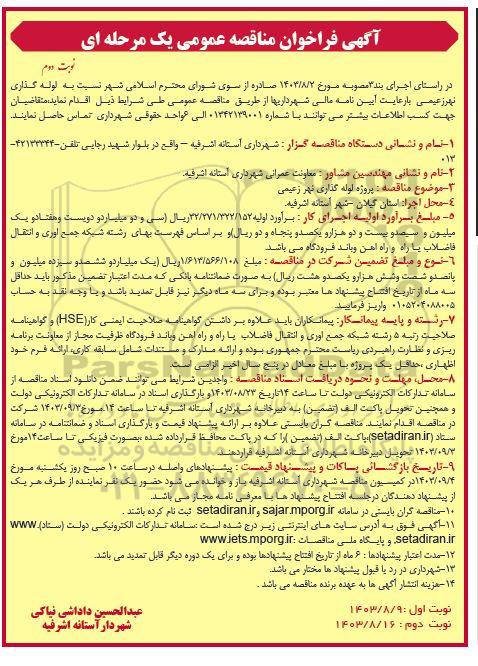 آگهی فراخوان مناقصه عمومی یک مرحله ای
نوبت دوم
در راستای اجرای بند۳مصوبه مورخ ۱۴۰۳/۸/۲ صادره از سوی شورای محترم اسلامی شهر نسبت به لوله گذاری
نهرزعیمی بارعایت آیین نامه مالی شهرداریها از طریق مناقصه عمومی طی شرایط ذیل اقدام نماید،متقاضیان
جهت کسب اطلاعات بیشتر می توانند با شماره ۰۱۳۴۲۱۳۹۰۰۱ الی ۶واحد حقوقی شهرداری تماس حاصل نمایند.
۱-نـام و نشانی دستگاه مناقصـه گـزار : شهرداری آستانه اشرفیه – واقع در بلـوار شهید رجایی تلفن۴۲۱۳۳۳۴۴-
۰۱۳
۲-نام و نشانی مهندسین مشاور : معاونت عمرانی شهرداری آستانه اشرفیه.
۳-موضوع مناقصه : پروژه لوله گذاری نهر زعیمی
۴-محل اجرا: استان گیلان –شهر آستانه اشرفیه.
۵- مبلـغ بـرآورد اولیـه اجـرای کار : بـرآورد اولیه۳۲/۲۷۱/۳۲۲/۱۵۲ریـال (سـی و دو میلیاردو دویست وهفتادو یـک
میلیـون و سیصدو بیست و دو هـزارو یکصدو پنجاه و دو ریال)و بـر اساس فهرست بهـای رشته شبکه جمع آوری و انتقال
فاضـلاب یا راه و راه آهـن وباند فـرودگاه مـی باشـد.
۶-نـوع و مبلـغ تضمیـن شـرکت در مناقصـه : مبلغ ۱/۶۱۳/۵۶۶/۱۰۸ریـال (یـک میلیاردو ششصدو سیزده میلیـون و
پانصدو شصـت وشش هـزارو یکصدو هشت ریـال) به صورت ضمانتنامه بانکـی کـه مدت اعتبار تضمین مذکور باید حداقل
سه مـاه از تاریـخ افتتاح پیشنهاد هـا معتبـر بـوده و بـرای سـه مـاه دیگـر نیـز قابـل تمدیـد باشـد و یـا وجـه نقـد به حسـاب
۰۱۰۵۲۰۴۰۸۸۰۰۵ واریز فرمایید.
۷-رشـته و پایـه پیمانـکار: پیمانـکاران بایـد عـلاوه بـر داشتـن گواهینامـه صلاحیـت ایمنـی کار(HSE) و گواهینامـه
صلاحیت رتبـه ۵ رشته شبکه جمع آوری و انتقـال فاضـلاب یـا راه و راه آهـن وبانـد فرودگاه ظرفیـت مجـاز از معاونـت برنامـه
ریـزی و نظـارت راهبـردی ریاست محتـرم جمهوری بـوده و ارائـه مـدارک و مستنـدات شامـل سابقه کاری، ارائـه فـرم خـود
اظهاری ،حداقل یـک پـروژه بـا مبلـغ معـادل در پنـج سـال اخیـر الزامـی اسـت.
۸-محـل، مهلـت و نحـوه دریافـت اسـناد مناقصـه : واجدیـن شـرایط مـی توانند ضمـن دانلـود اسناد مناقصـه از
سامانه تدارکات الکترونیکی دولـت تا سـاعت ۱۴تاریـخ۱۴۰۳/۰۸/۲۳و بارگذاری اسناد در سامانه تدارکات الکترونیکـی دولت
و همچنیـن تحویل پاکت الـف (تضمیـن) به دبیرخانـه شهرداری آستانه اشرفیـه تـا سـاعت ۱۴ مـورخ۱۴۰۳/۰۹/۳ شـرکت
در مناقصـه اقدام نماینـد. مناقصـه گران بایستـی عـلاوه بـر ارائه پیشنهاد قیمـت و بارگـذاری اسناد و ضمانتنامه در سامانه
ستاد (setadiran.ir)،پاکـت الـف (تضمیـن )را کـه در پاکـت محافـظ قـرارداده شده بصورت فیزیکـی تـا سـاعت۱۴مورخ
۱۴۰۳/۰۹/۳ تحویـل دبیرخانـه شهرداری آستانـه اشرفیـه قراردهنـد.
۹-تاریـخ بازگشـائی پـاکات و پیشـنهاد قیمـت : پیشنهادهای واصله درساعت ۱۰ صبـح روز یکشنبـه مـورخ
۱۴۰۳/۰۹/۴در کمیسیون مناقصه شهرداری آستانه اشرفیه بـاز و خوانـده مـی شود حضور یـک نفر نماینده از طـرف هـر یـک
از پیشنهاد دهنـدگان درجلسـه افتتـاح پیشنهاد هـا بـا معرفـی نامـه مجـاز مـی باشـد.
۱۰-مناقصه گران بایستی در سامانه sajar.mporg.ir وsetadiran.ir ثبت نام کرده باشند .
۱۱-آگهـی فـوق بـه آدرس سایت هـای اینترنتـی زیـر درج شـده اسـت :سامانه تـدارکات الکترونیکـی دولـت (ستاد).www
setadiran.ir, و پایـگاه ملـی مناقصـات :www.iets.mporg.ir
۱۲-مدت اعتبار پیشنهادها : ۶ ماه از تاریخ افتتاح پیشنهادها بوده و برای یک دوره دیگر قابل تمدید می باشد.
۱۳-شهرداری در رد یا قبول پیشنهاد ها مختار می باشد.
۱۴-هزینه انتشار آگهی ها به عهده برنده مناقصه می باشد .
نوبت اول :۱۴۰۳/۸/۹
نوبت دوم : ۱۴۰۳/۸/۱۶
عبدالحسین داداشی نیاکی
شهردار آستانه اشرفیه